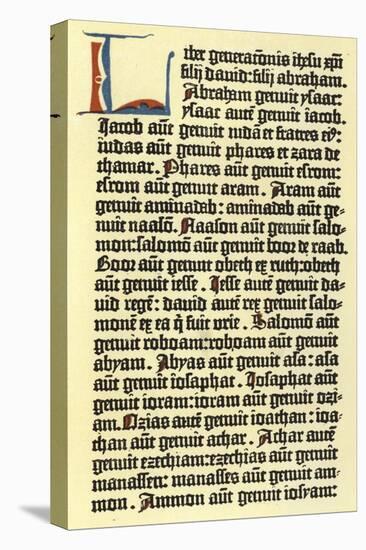 Liber generac̄onis ihesu xp̄i
filij dauid: filij abraham.
Abraham genuit ysaac:
ysaac aute̅ genuit iacob.
Iacob au̅t genuit iuda̅ et fratres ei9:
iudas au̅t genuit phares et zara de
thamar. Phares au̅t genuit esrom:
esrom au̅t genuit aram. Aram au̅t
genuit aminadab: aminadab au̅t ge-
nuit naaso̅. Naason au̅t genuit salo-
mon: salomo̅ au̅t genuit booz de raab.
Booz au̅t genuit obeth ex ruth: obeth
au̅t genuit iesse. Iesse aute̅ genuit da-
uid rege̅: dauid aute̅ rex genuit salo-
mone̅ ex ea q̅ fuit vrie. Salomo̅ au̅t
genuit roboam: roboam au̅t genuit
abyam. Abyas au̅t genuit asa: asa
au̅t genuit iosaphat. Iosaphat au̅t
genuit ioram: ioram au̅t genuit ozi-
am. Ozias aute̅ genuit ioathan: ioa-
than au̅t genuit achar. Achar aute̅
genuit ezechiam: ezechias au̅t genuit
manassen: manasses au̅t genuit am-
mon. Ammon au̅t genuit iosyam: